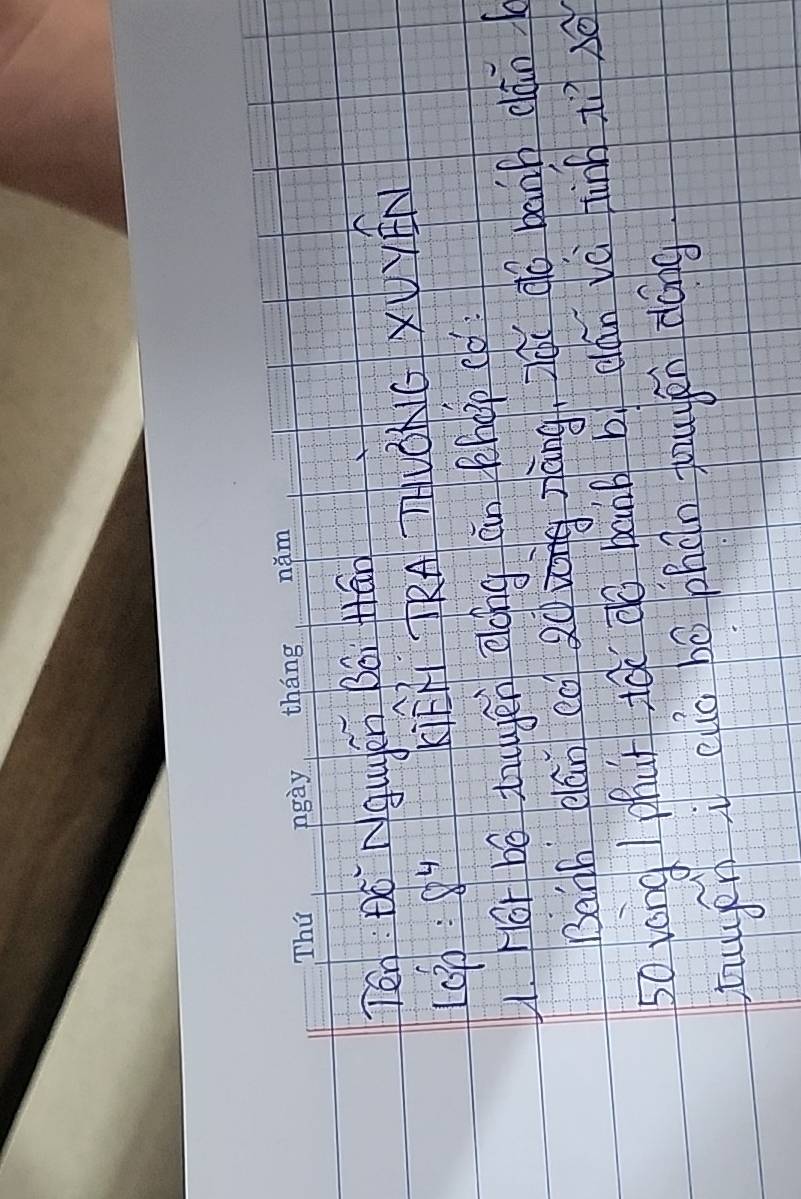 Thứ ngày tháng năm
Tên: Đỗ Nguyễn Bội Hân
Lớp: 84 KIỂM TRA THƯỜNG XUYÊN
1. Một bộ truyền động ăn khớp có:
Bánh dẫn có 20 vòng răng, tốc độ bánh dẫn là
50 vòng / phút tốc độ bánh bị dẫn và tính tỉ số
truyền i của bộ phận truyền động.